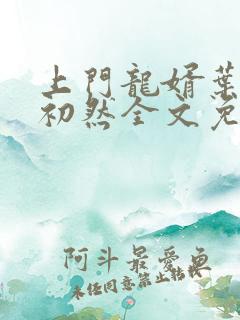 上門龍婿葉
初然全文免
阿斗最愛魚
未任同意禁止转载